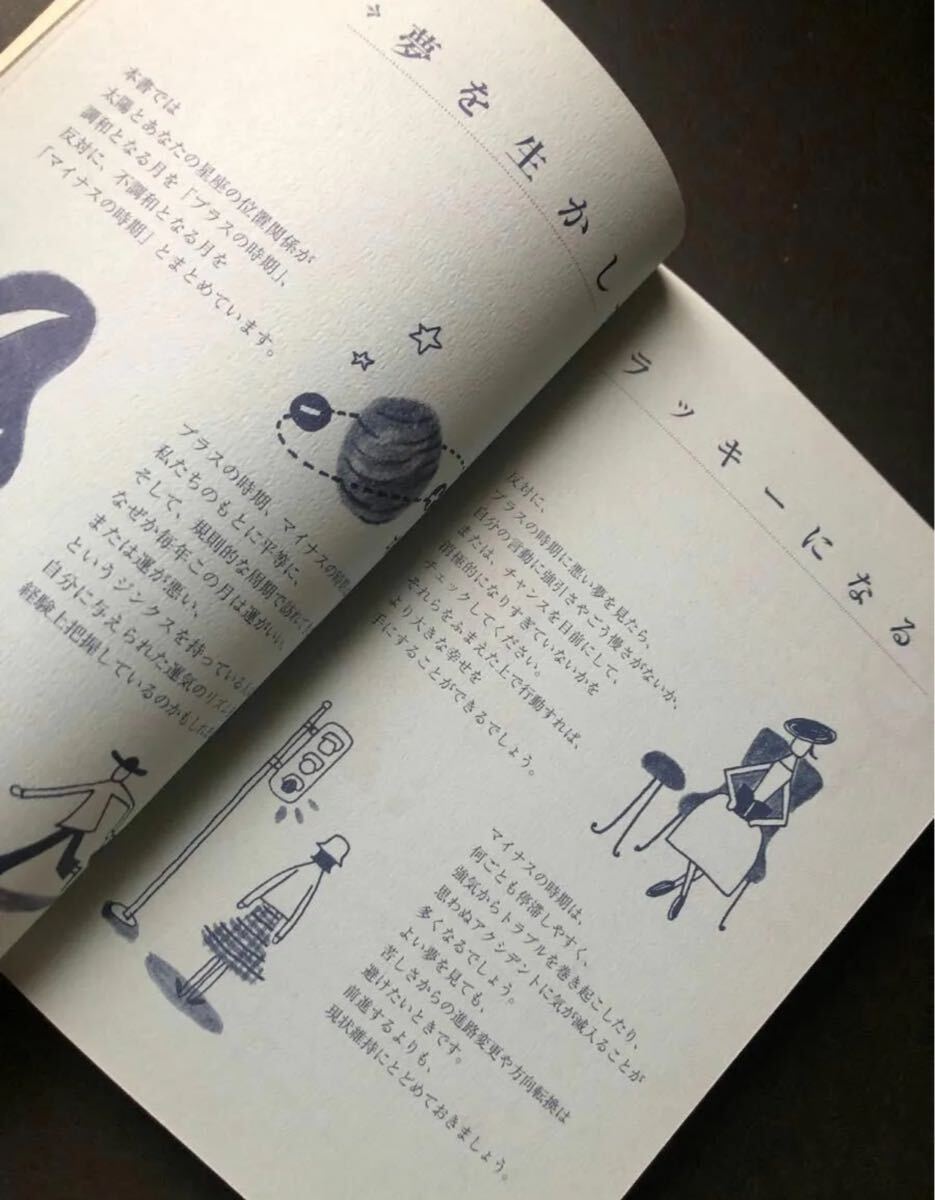 う夢を生かし
本書では
太陽とあなたの星座の位置関係が
調和となる月を「プラスの時期」、
反対に、不調和となる月を
「マイナスの時期」とまとめています。
プラスの時期、マイナスの時期
私たちのもとに平等に、
そして、規則的な周期で訪れて
なぜか毎年この月は運がいい、
または運が悪い、
というジンクスを持っている
自分に与えられた運気のリズム
経験上把握しているのかもしれ
ラッキーになる
反対に、
プラスの時期に悪い夢を見たら、
自分の言動に強引さやごう慢さがないか、
または、チャンスを目前にして、
消極的になりすぎていないかを
チェックしてください。
それらをふまえた上で行動すれば、
より大きな幸せを
手にすることができるでしょう。
マイナスの時期は、
何ごとも停滞しやすく、
強気からトラブルを巻き起こしたり、
思わぬアクシデントに気が滅入ることが
多くなるでしょう。
よい夢を見ても、
苦しさからの進路変更や方向転換は
避けたいときです。
前進するよりも、
現状維持にとどめておきましょう。